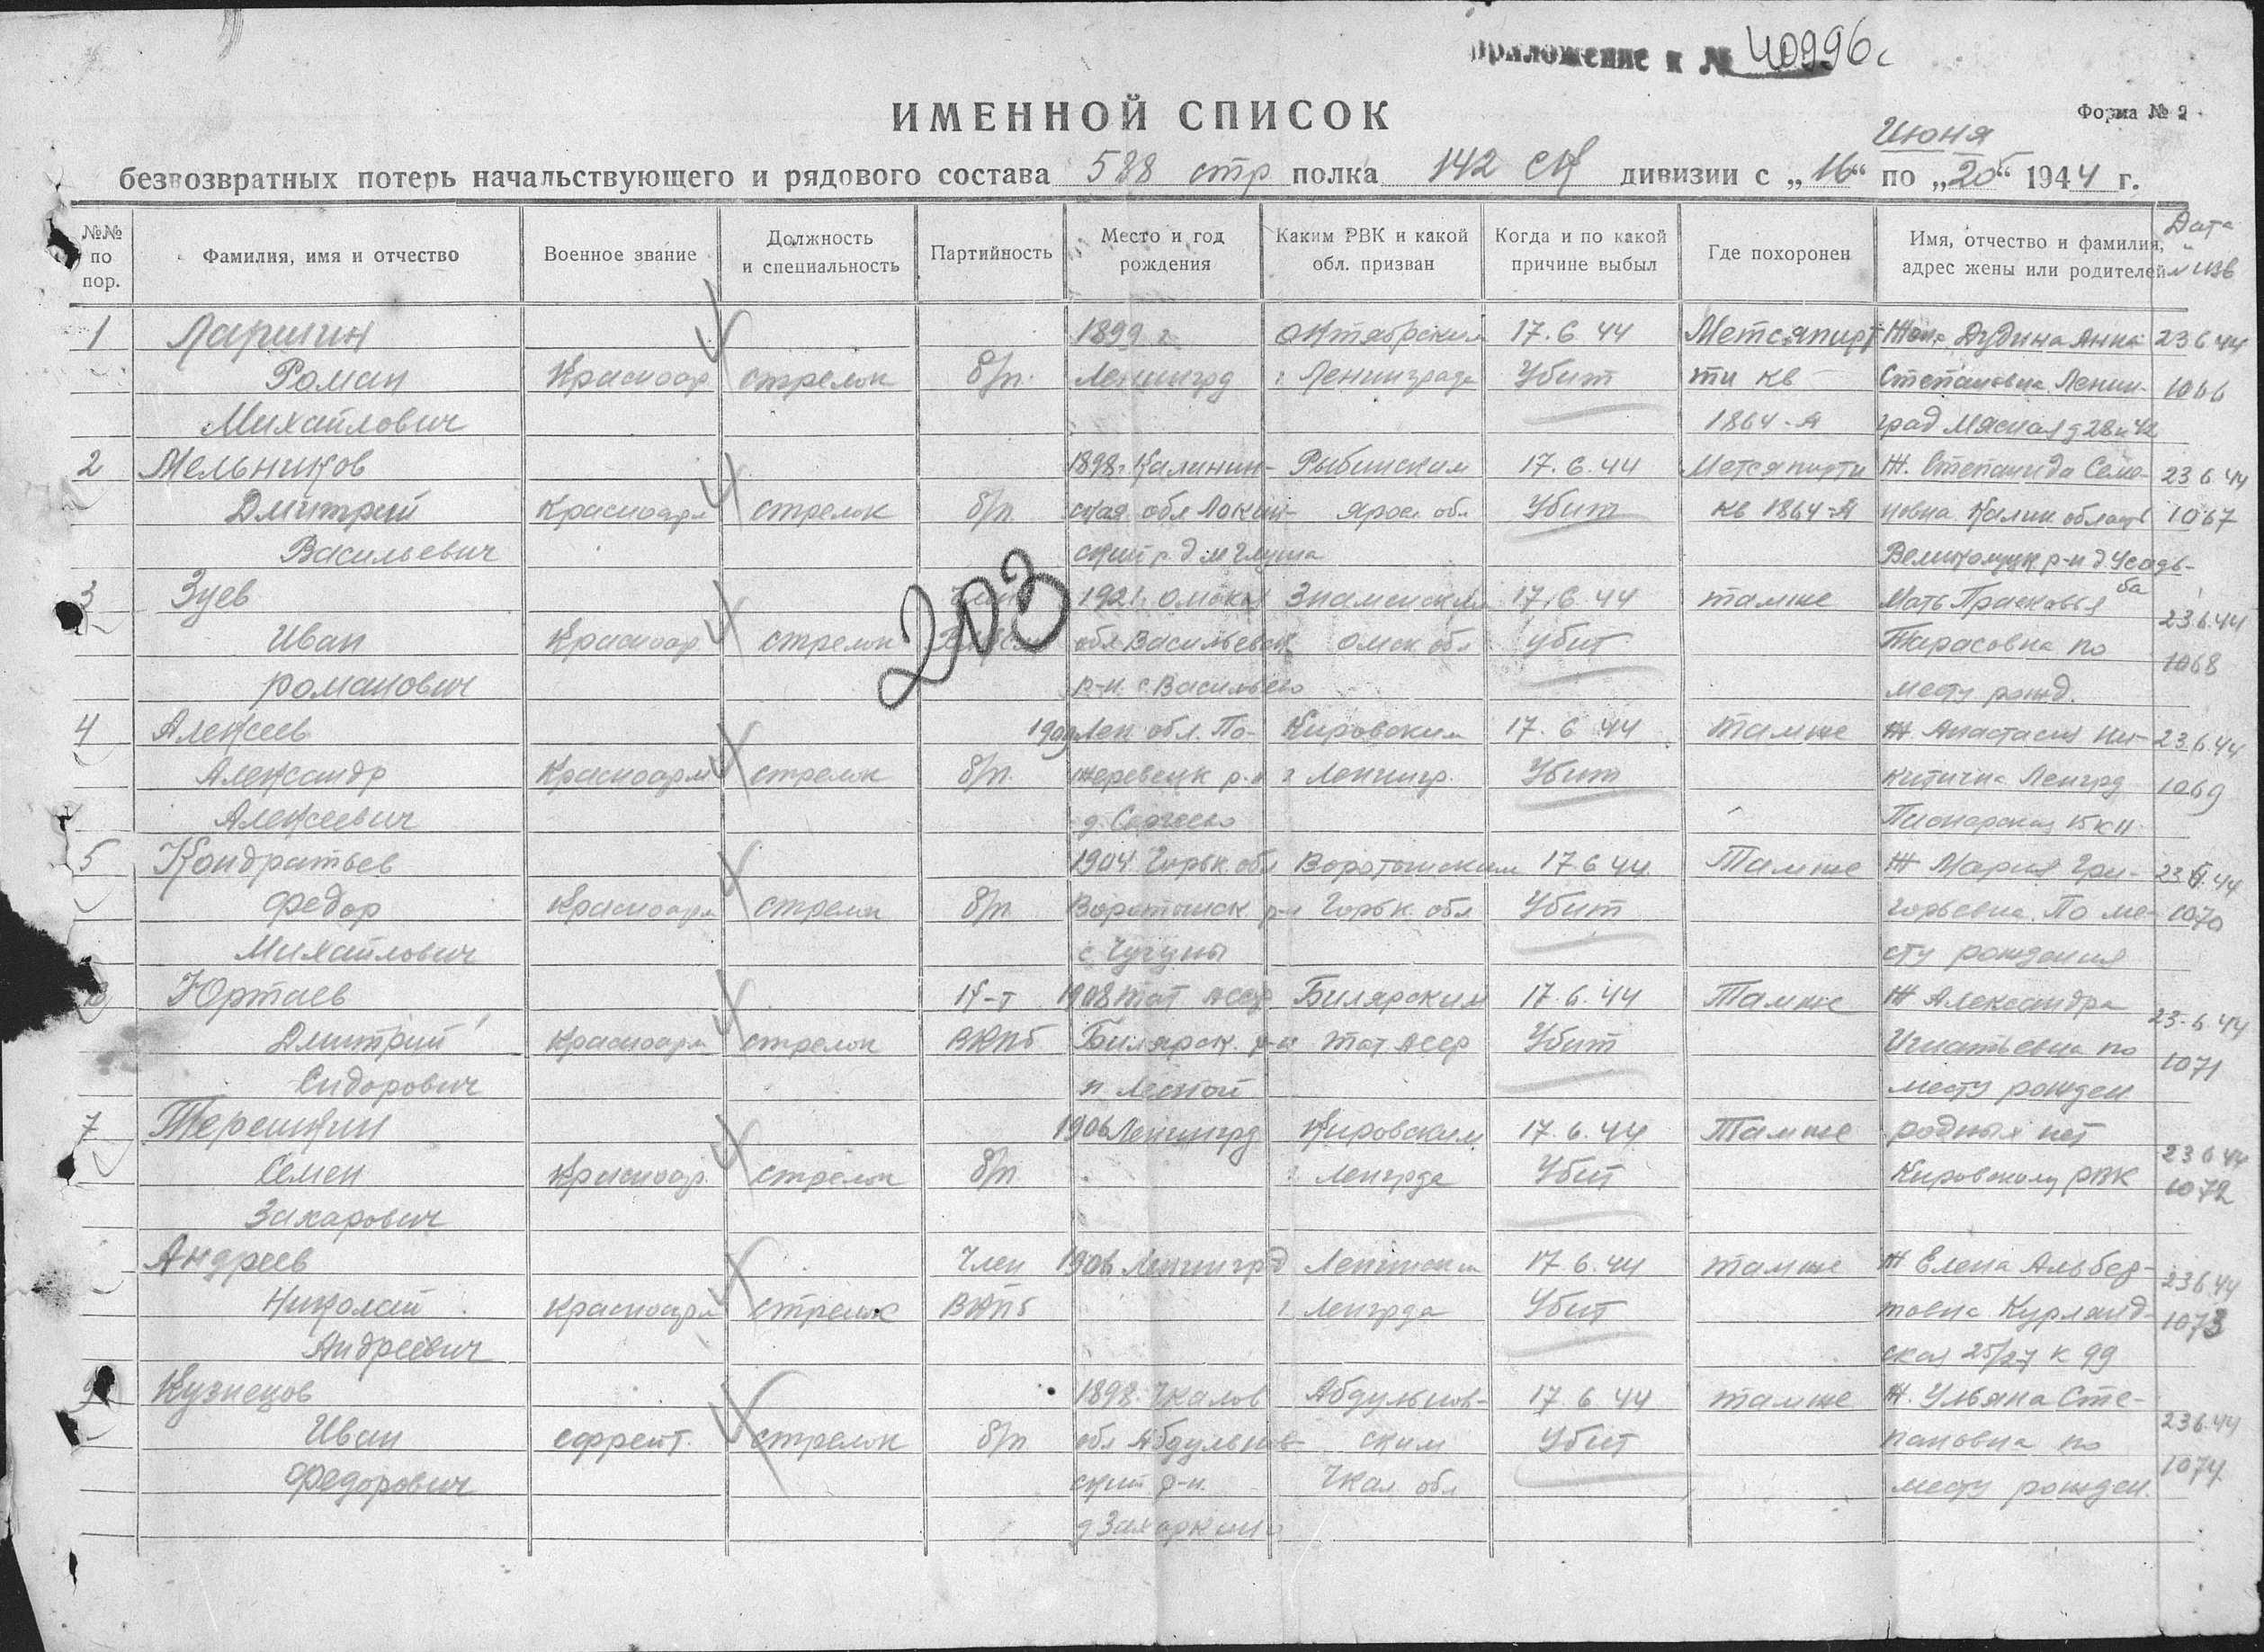 приложение к № 40996с
ИМЕННОЙ СПИСОК
Форма № 2
Июня
безвозвратных потерь начальствующего и рядового состава 588 стр полка 142 сд дивизии с „16“ по „20“ 1944 г.
№№ по пор. Фамилия, имя и отчество Военное звание Должность и специальность Партийность Место и год рождения Каким РВК и какой обл. призван Когда и по какой причине выбыл Где похоронен Имя, отчество и фамилия, адрес жены или родителей Дата и № изв
1 Ларигин 1899 г Октябрьским 17.6.44 Метсяпирт- Жена Дудина Анна 23 6 44
Роман Красноар стрелок б/п. Ленинград г. Ленинграда Убит ти кв Степановна Ленин- 1066
Михайлович 1864-Я град Мясная д 28 к 42
2 Мельников 1898г Калинин- Рыбинским 17.6.44 Метсяпирти Ж. Степанида Семе- 23 6.44
Дмитрий Красноарм стрелок б/п ская обл Локнян- яросл обл Убит кв 1864-Я новна Калин область 1067
Васильевич ский р. д Великолукк р-н д Усадь-
203
3 Зуев член 1921г Омская Знаменским 17.6.44 тамже Мать Прасковья ба 23.6.44
Иван Красноар стрелок обл Васильевск омск обл убит Тарасовна по 1068
романович р-н. с. Васильево месту рожд.
4 Алексеев 1909 Лен обл. По- Кировским 17.6 44 тамже Ж Анастасия Ни- 23.6.44
Александр Красноарм стрелок б/п. жеревецк р-н г Ленингр. Убит китична Ленгрд 1069
Алексеевич д. Сергеево Пионерская 15 к 11
5 Кондратьев 1904 Горьк. обл Воротынским 17 6 44 Тамже Ж Мария Гри- 23.6.44
Федор Красноарм стрелок б/п Воротынск р-н Горьк. обл Убит горьевна. По ме- 1070
Михайлович с. Чугуны сту рождения
6 Юртаев К-т 1908 тат АССР Билярским 17.6.44 Тамже Ж Александра 23.6.44
Дмитрий Красноарм стрелок ВКПб Билярск. р-н тат АССР Убит Игнатьевна по 1071
Сидорович п. Лесной месту рожден
7 Терешкин 1906 Ленинград Кировским 17.6.44 Тамже родных нет 23 6 44
Семен Красноар. стрелок б/п г. Ленгрда Убит Кировскому РВК 1072
Захарович
Андреев Член 1906 Ленинград Ленинским 17.6.44 тамже Ж Елена Альбер- 23 6 44
Николай Красноарм стрелок ВКПб г. Ленгрда Убит товна Курлянд- 1073
Андреевич ская 25/27 к 99
9 Кузнецов 1898. Чкалов Абдулинов- 17.6 44 тамже Ж. Ульяна Сте- 23 6.44
Иван ефрейт. стрелок б/п обл Абдулинов- ским Убит пановна по 1074
Федорович ский р-н. Чкал обл месту рожден.
д Захаркино